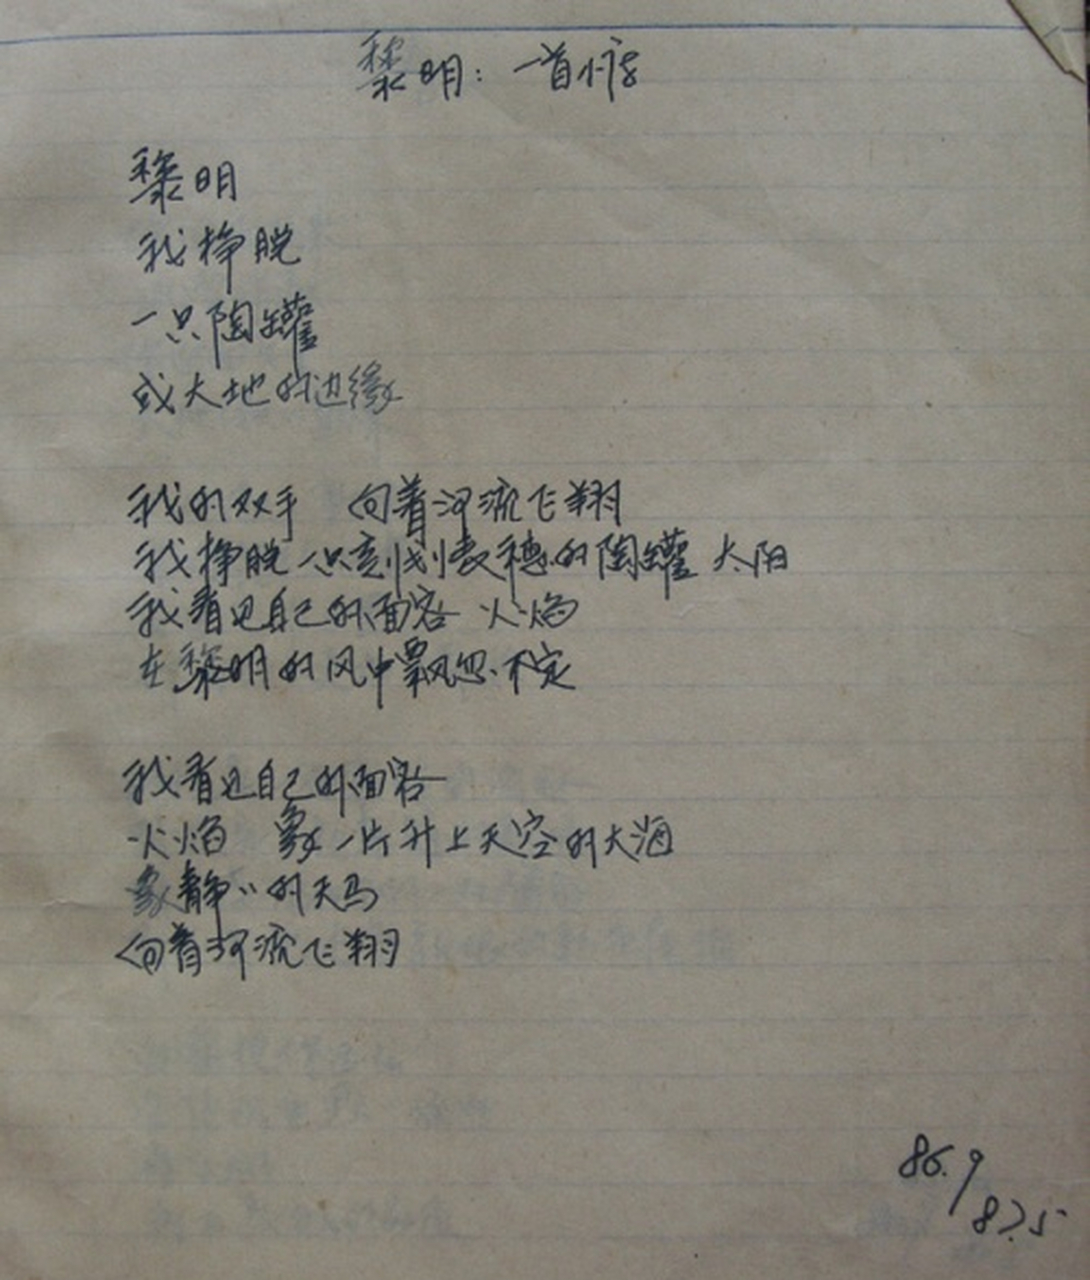 黎明：一首小诗
黎明
我挣脱
一只陶罐
或大地的边缘
我的双手 向着河流飞翔
我挣脱一只刻划麦穗的陶罐 太阳
我看见自己的面容 火焰
在黎明的风中飘忽不定
我看见自己的面容
火焰 象一片升上天空的大海
象静〃的天马
向着河流飞翔
86.9
87.5